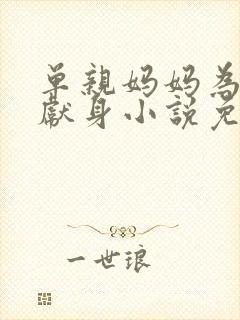 单親妈妈為
獻身小說免
一世琅